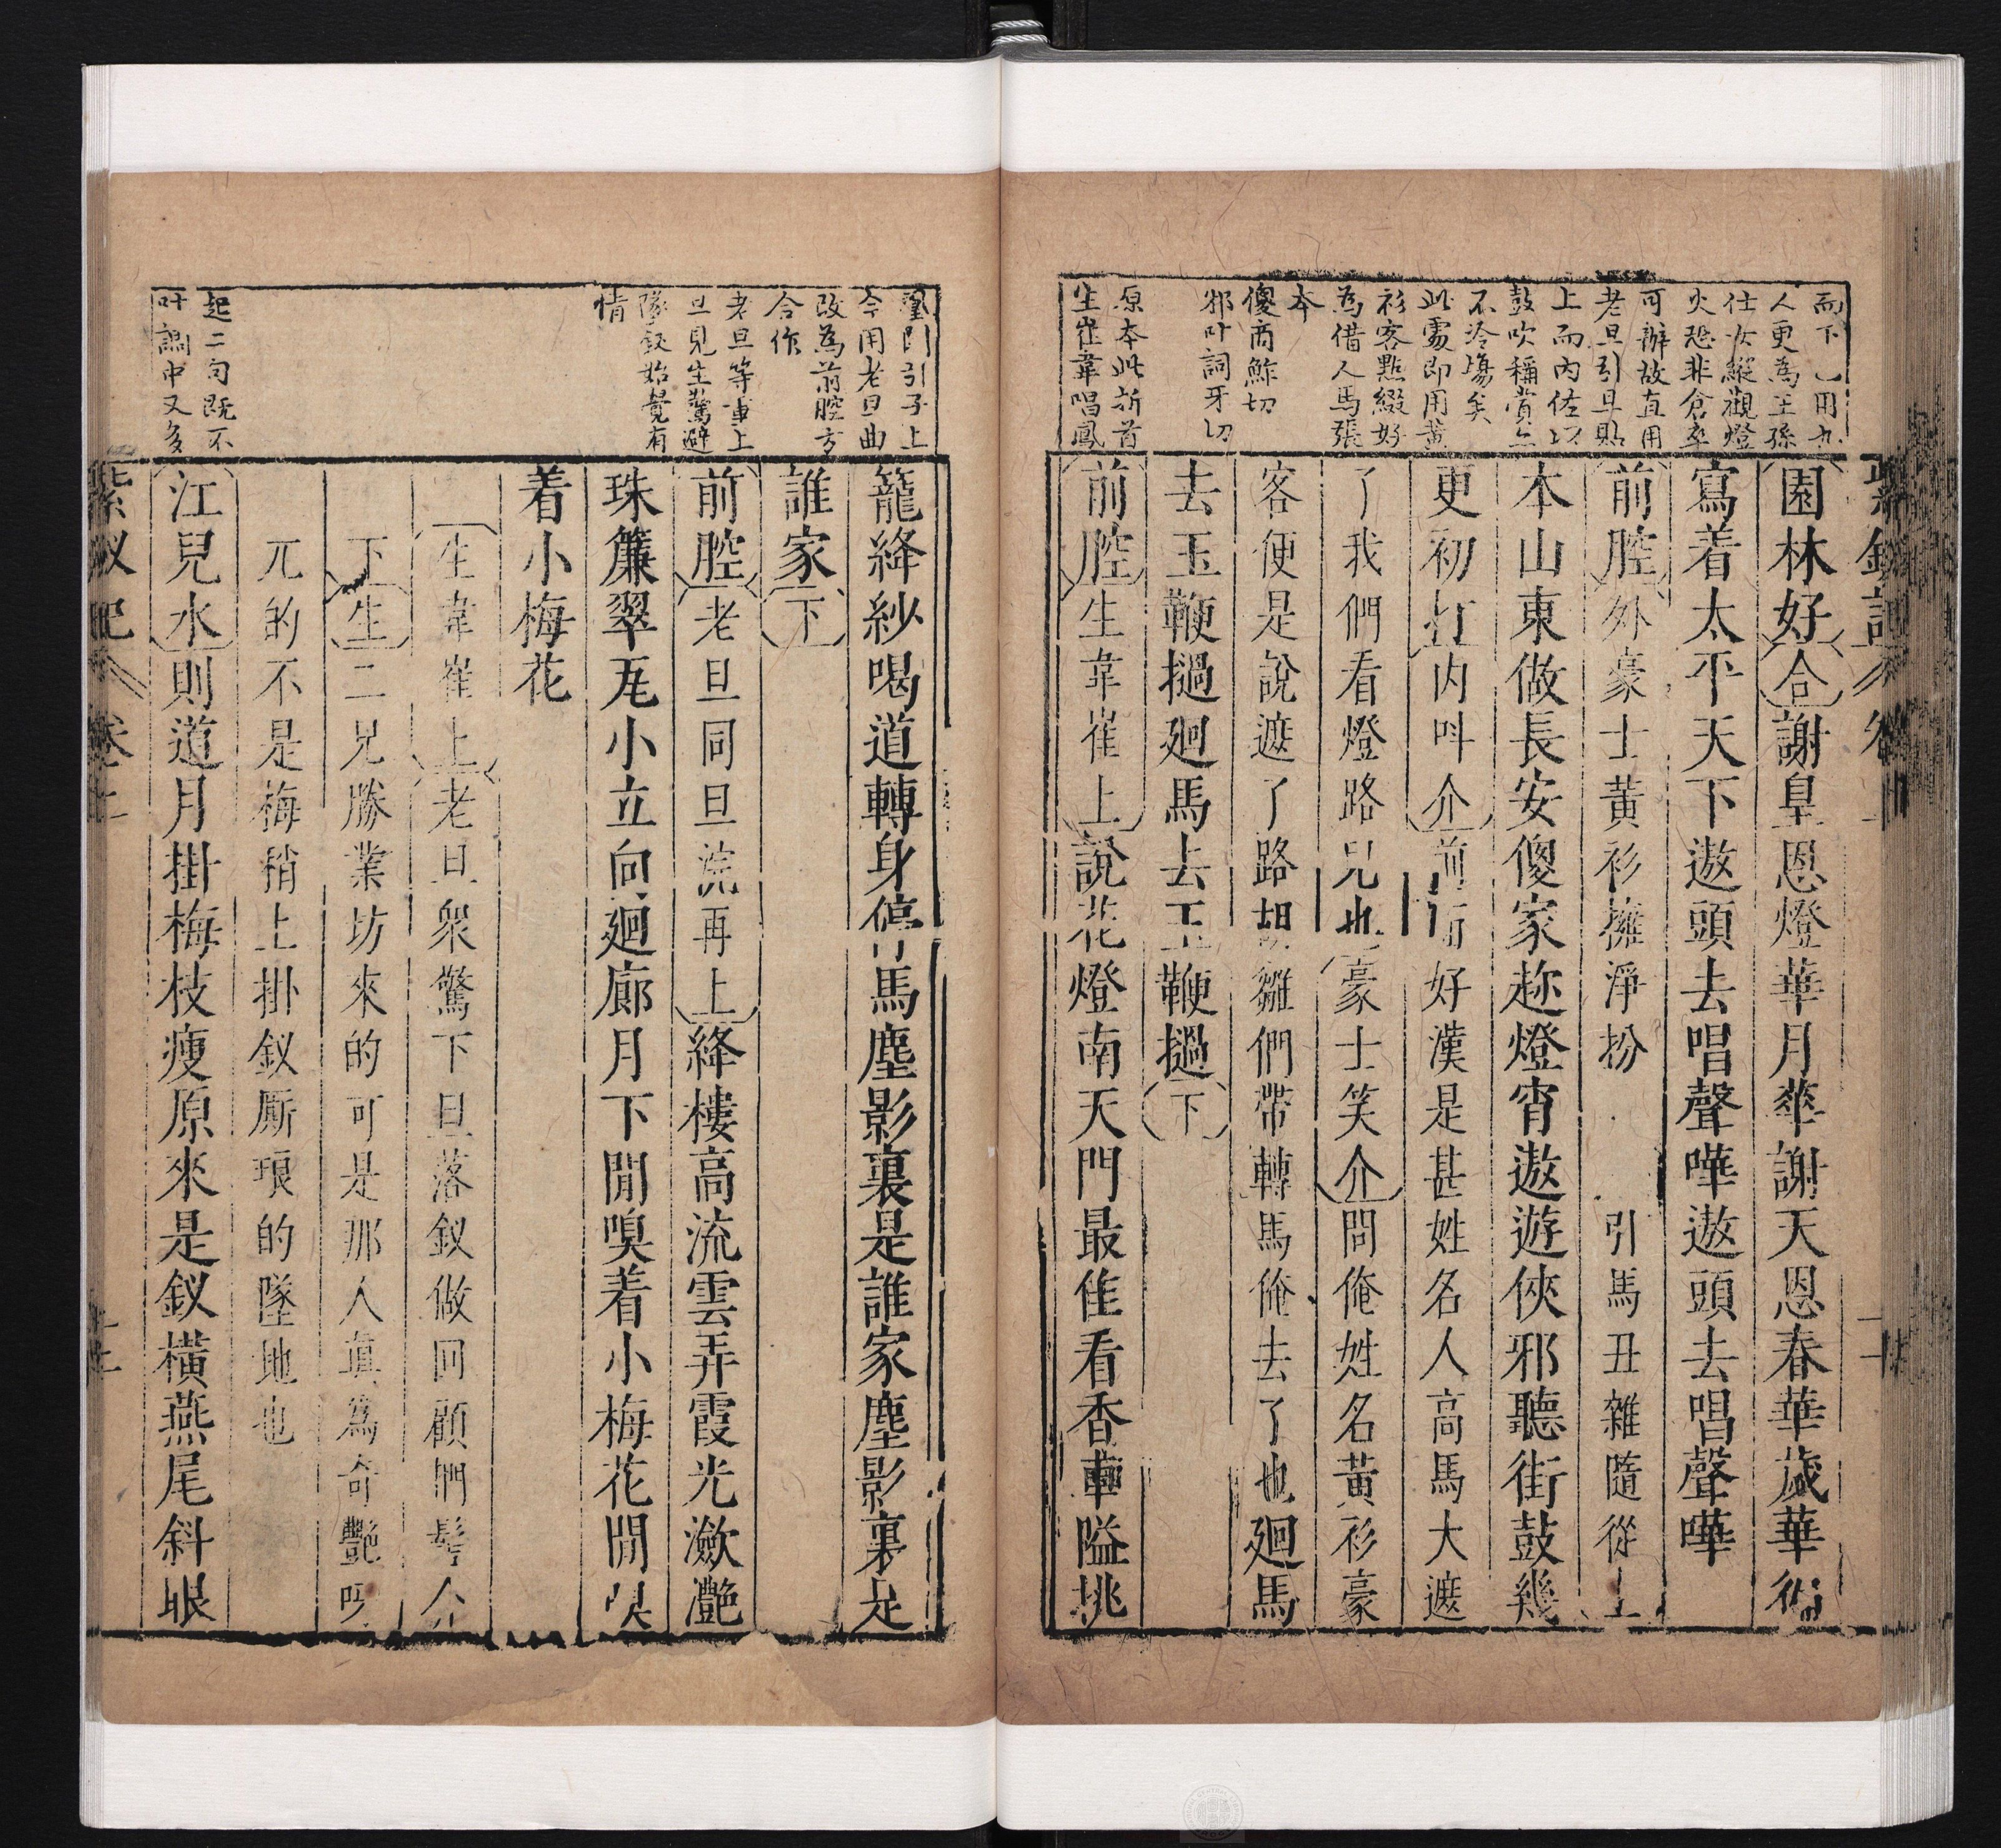 而下用九
人更為王孫
仕女縱觀燈
火恐非倉卒
可辦故直用
老旦引旦貼
上而內佐以
鼓吹稱賞亦
不冷塲矣
此處即用黃
衫客點綴好
為借人馬張
本
傻商鮓切
邪叶詞牙切
原本此折首
生崔韋唱鳳
紫釵記 卷上
園林好合謝皇恩燈華月華謝天恩春華歲華
寫着太平天下遨頭去唱聲嘩遨頭去唱聲嘩
前腔外豪士黃衫擁淨扮 引馬丑雜隨從上
本山東做長安傻家趂燈宵遨遊俠邪聽街鼓幾
更初打內叫介前 好漢是甚姓名人高馬大遮
了我們看燈路兒也豪士笑介問俺姓名黃衫豪
客便是說遮了路胡雛們帶轉馬俺去了也廻馬
去玉鞭撾廻馬去玉鞭撾下
前腔生韋崔上說花燈南天門最隹看香車隘挑
凰閣引子上
今用老旦曲
改為前腔方
合作
老旦等重上
旦見生驚避
隊釵始覺有
情
起二句既不
叶調中又多
籠絳紗喝道轉身停馬塵影裏是誰家塵影裏是
誰家下
前腔老旦同旦浣再上絳樓高流雲弄霞光瀲灧
珠簾翠瓦小立向廻廊月下閒嗅着小梅花閒嗅
着小梅花
生韋崔上老旦衆驚下旦落釵做回顧們髩介
下生二兄勝業坊來的可是那人眞為奇艷呀
兀的不是梅梢上掛釵厮琅的墜地也
江兒水則道月掛梅枝瘦原來是釵橫燕尾斜眼
紫釵記 卷上